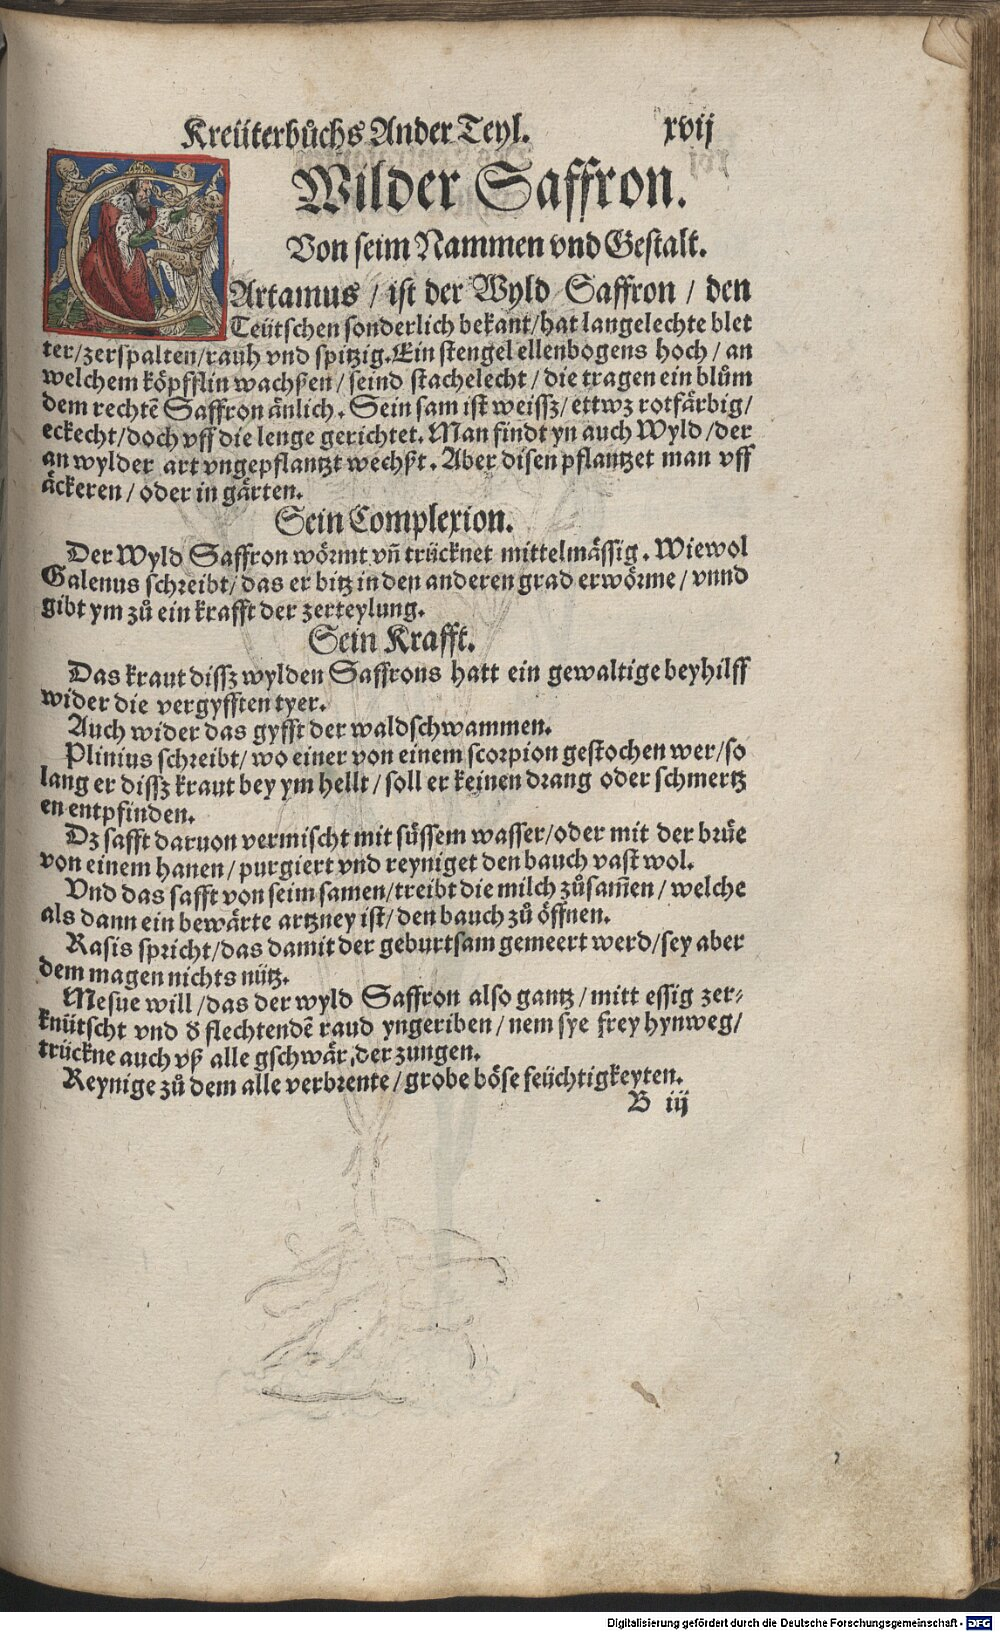 Kreüterbůchs Ander Teyl. xvij
Wilder Saffron.
Von seim Nammen vnd Gestalt.
CArtamus / ist der Wyld Saffron / den
Teütschen sonderlich bekant/hat langelechte blet
ter/zerspalten/rauh vnd spitzig.Ein stengel ellenbogens hoch / an
welchem köpfflin wachßen / seind stachelecht / die tragen ein blům
dem rechtē Saffron änlich. Sein sam ist weissz/ ettwz rotfärbig/
eckecht/doch vff die lenge gerichtet. Man findt yn auch Wyld /der
an wylder art vngepflantzt wechßt. Aber disen pflantzet man vff
äckeren / oder in gärten.
Sein Complexion.
Der Wyld Saffron wörmt vn̄ trücknet mittelmässig. Wiewol
Galenus schreibt/ das er bitz in den anderen grad erwörme / vnnd
gibt ym zů ein krafft der zerteylung.
Sein Krafft.
Das kraut dissz wylden Saffrons hatt ein gewaltige beyhilff
wider die vergyfften tyer.
Auch wider das gyfft der waldschwammen.
Plinius schreibt/ wo einer von einem scorpion gestochen wer/so
lang er dissz kraut bey ym hellt / soll er keinen drang oder schmertz
en entpfinden.
Dz safft daruon vermischt mit süssem wasser/oder mit der brüe
von einem hanen / purgiert vnd reyniget den bauch vast wol.
Vnd das safft von seim samen/treibt die milch zůsam̄en / welche
als dann ein bewärte artzney ist/ den bauch zů öffnen.
Rasis spricht/das damit der geburtsam gemeert werd/sey aber
dem magen nichts nütz.
Mesue will /das der wyld Saffron also gantz / mitt essig zer⸗
knütscht vnd d̓ flechtendē raud yngeriben / nem sye frey hynweg/
trückne auch vß alle gschwär, der zungen.
Reynige zů dem alle verbrente / grobe böse feüchtigkeyten.
B iij
Digitalisierung gefördert durch die Deutsche Forschungsgemeinschaft - DFG